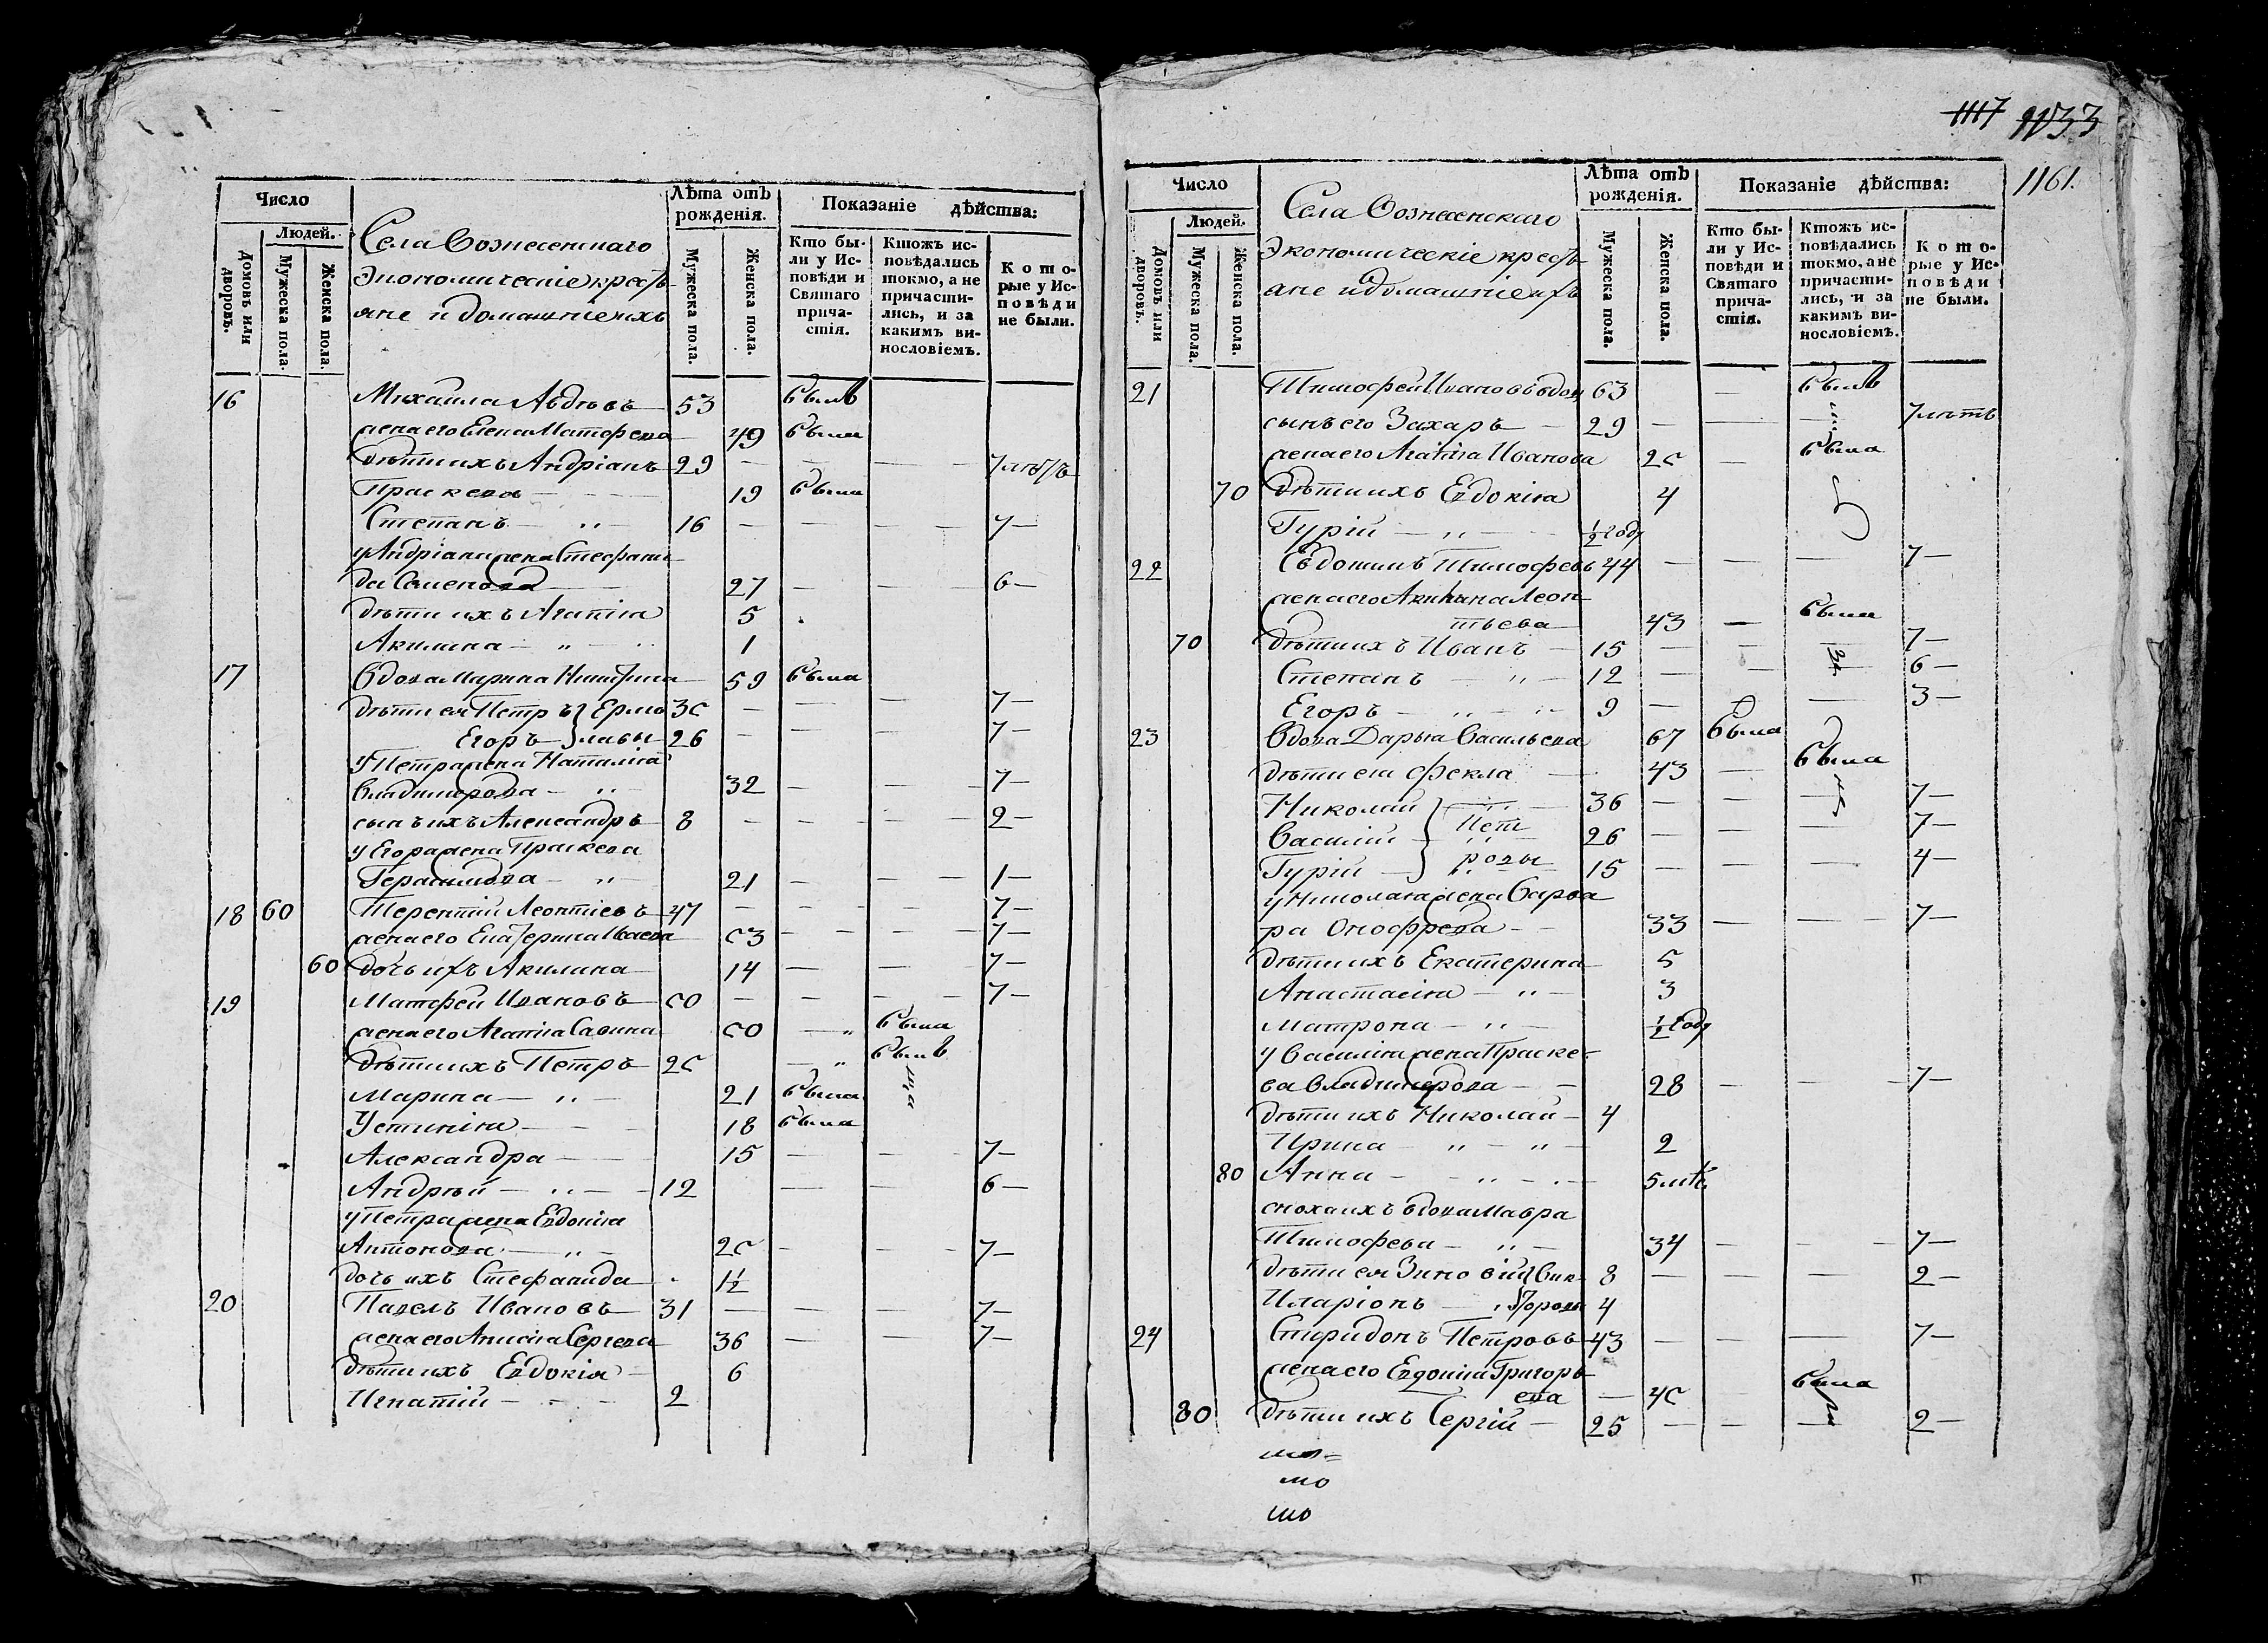 1117 1133
1161.
Число
Людей.
Домовъ или дворовъ.
Мужеска пола.
Женска пола.
Села Вознесенскаго
Экономическіе кресть-
яне и домашніе ихъ
Лѣта отъ рожденія.
Мужеска пола.
Женска пола.
Показаніе дѣйства:
Кто бы-
ли у Ис-
повѣди и
Святаго
прича-
стія.
Ктожъ ис-
повѣдались
токмо, а не
причасти-
лись, и за
какимъ ви-
нословіемъ.
Кото-
рые у Ис-
повѣди
не были.
16 Михайла Авдѣевъ 53 былъ
жена его Елена Матфеева 49 была
дѣти ихъ Андріанъ 29 — — — 7 лѣтъ
Праскева 19 была
Степанъ — 16 — — — 7 —
у Андріана жена Стефани-
да Семенова 27 — — 6 —
дѣти ихъ Агапіа 5
Акилина — 1
17 вдова Марина Никитина 59 была
дѣти ея Петръ } Ермо 3С — — — 7 —
Егоръ } лавы 26 — — — 7 —
у Петра жена Наталіа
Владимерова — 32 — — 7 —
сынъ ихъ Александръ 8 — — — 2 —
у Егора жена Праскева
Герасимова — 21 — — 1 —
18 60 Терентій Леонтіевъ 47 — — — 7 —
жена его Екатерина С3 — — — 7 —
60 дочь ихъ Акилина 14 — — 7 —
19 Матфей Ивановъ С0 — — — 7 —
жена его Агапіа Савина С0 — была
дѣти ихъ Петръ 2С — былъ
Марина — 21 была
Устиніа — 18 была
Александра — 15 — — 7 —
Андрѣй — 12 — — 6 —
у Петра жена Евдокіа
Антонова — 2С — — 7 —
дочь ихъ Стефанида 1½
20 Павелъ Ивановъ 31 — — — 7 —
жена его Анисіа Сергеева 36 — — 7 —
дѣти ихъ Евдокіа 6
Игнатій — 2
Число
Людей.
Домовъ или дворовъ.
Мужеска пола.
Женска пола.
Села Вознесенскаго
Экономическіе кресть-
яне и домашніе ихъ
Лѣта отъ рожденія.
Мужеска пола.
Женска пола.
Показаніе дѣйства:
Кто бы-
ли у Ис-
повѣди и
Святаго
прича-
стія.
Ктожъ ис-
повѣдались
токмо, а не
причасти-
лись, и за
какимъ ви-
нословіемъ.
Кото-
рые у Ис-
повѣди
не были.
21 Тимофей Ивановъ вдов 63 — былъ
сынъ его Захаръ — 29 — — — 7 лѣтъ
жена его Агапіа Иванова 2С — была
70 дѣти ихъ Евдокіа 4
Гурій — ½ году
22 Евдокимъ Тимофеевъ 44 — — — 7 —
жена его Акилина Леон-
тьева 43 — была
70 дѣти ихъ Иванъ — 15 — — 7 —
Степанъ — 12 — — 6 —
Егоръ — 9 — — 3 —
23 вдова Дарья Васильева 67 была
дѣти ея Фекла — 43 — была
Николай } 36 — — — 7 —
Василій } Пет 26 — — — 7 —
Гурій } ровы 15 — — — 4 —
у Николая жена Варва
ра Онофреева — 33 — — 7 —
дѣти ихъ Екатерина 5
Анастасіа — 3
Матрона — ½ году
у Василія жена Праске-
ва Владимерова — 28 — — 7 —
дѣти ихъ Николай — 4
Ирина — 2
80 Анна —
сноха ихъ вдова Мавра
Тимофеева — 34 — — 7 —
дѣти ея Зиновій 8 — — — 2 —
Иларіонъ — 4
24 Спиридонъ Петровъ 43 — — — 7 —
жена его Евдокіа Григорь-
ева — 4С — была
80 дѣти ихъ Сергій — 25 — — — 2 —
мо